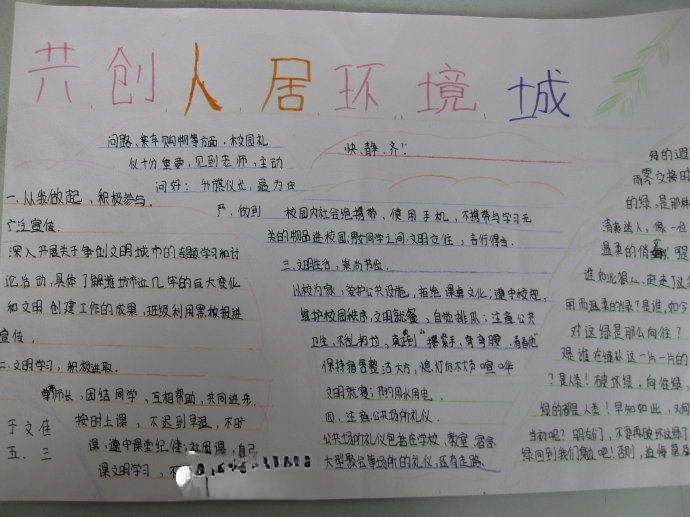 共创人居环境城
问路、乘车购物等方面，校园礼
仪十分重要，见到老师，主动
问好；升旗仪式，最为庄
严，做到
快、静、齐！
一.从我做起，积极参与.
广泛宣传.
深入开展关于争创文明城市的专题学习和讨
论活动，具体了解潍坊市近几年的巨大变化
和文明创建工作的成果，班级利用黑板报进
宣传.
二.文明学习，积极进取.
师长，团结同学，互相帮助，共同进步.
按时上课，不迟到早退，不旷
课，遵守课堂纪律，
课文明学习，不
于文佳
五.三
校园内社会绝携带、使用手机，不携带与学习无
关的物品进校园，男女同学之间，文明交往，言行得当.
三.文明生活，崇尚节俭.
以校为家，爱护公共设施，拒绝课桌文化；遵守校规，
维护校园秩序，文明就餐，自觉排队；注意公共
卫生，不乱扔垃，真正做到
保持宿舍整洁大方，熄灯后不大声喧哗
文明就寝；节约用水用电.
四.注意公共场所礼仪
公共场所礼仪包者在学校、教室、宿舍
大型聚会等场所的礼仪，还有走路、
绿的遐
雨零交换时
的绿，是那样
清新迷人，像一位
温柔的
谁如此狠心，赶走了这
用而温柔的绿？是谁，如今
对这绿是那么向往？
是谁在维护这一片一片的
？是人类！破坏绿，向往绿，
绿的都是人类！早知如此，又何
当初呢？朋友们，不要再破坏这绿了
绿回到我们身边吧！否则，